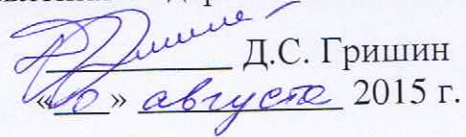 Д.С. Гришин
«10» августа 2015 г.